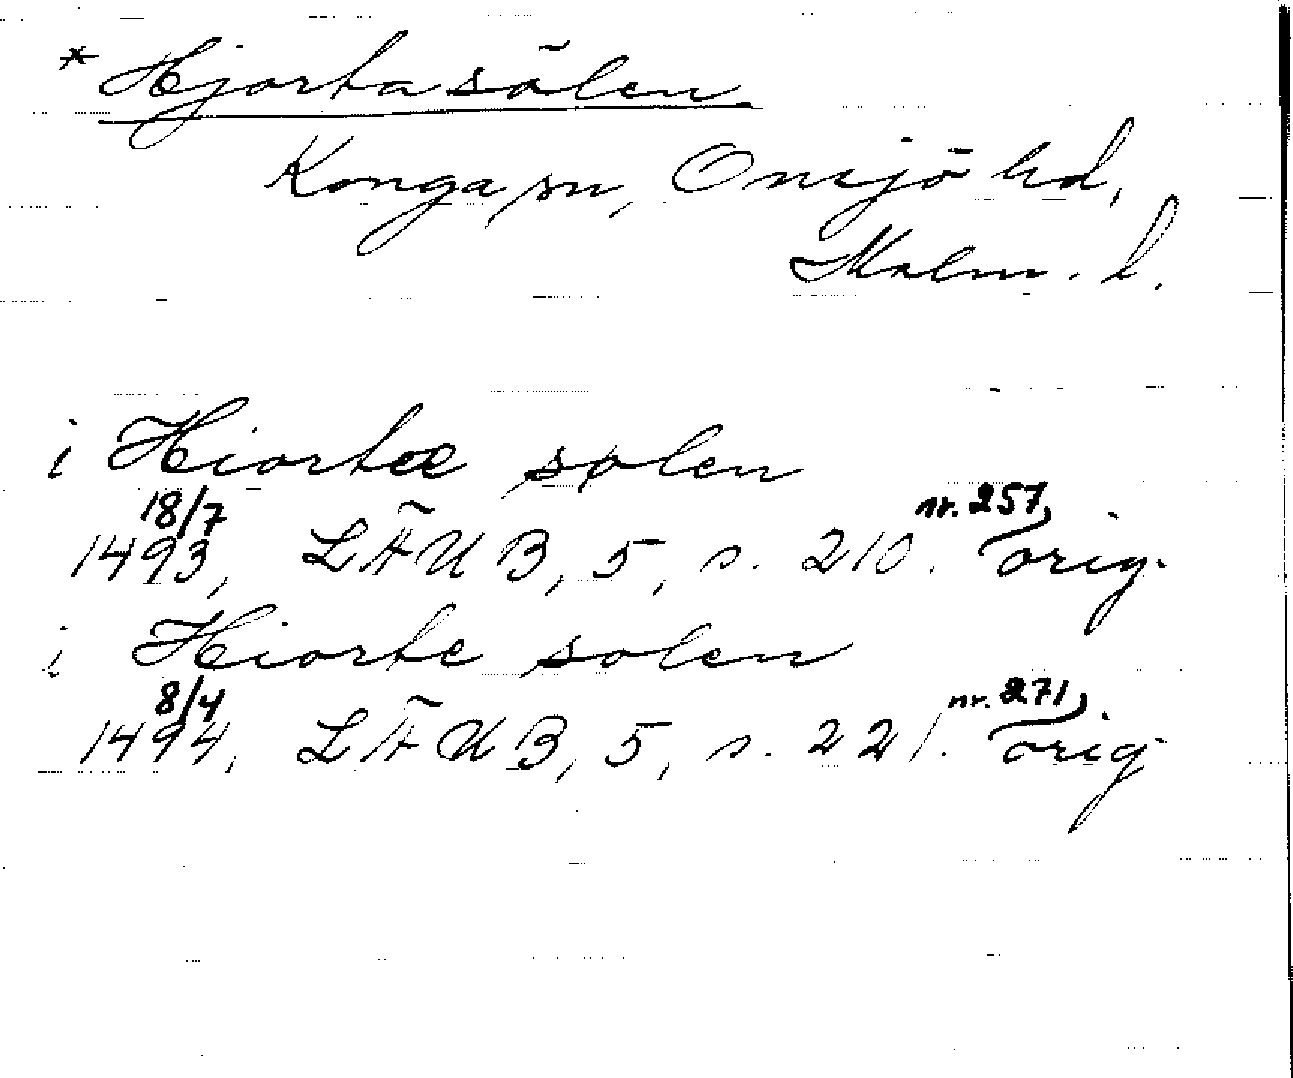 * Hjortasölen
Konga sn, Onsjö hd,
Malm. l.
i Hiortæ sølen
18/7 nr. 257,
1493, LÄUB, 5, s. 210. orig.
i Hiorte solen
8/4 nr. 271,
1494, LÄUB, 5, s. 221. orig